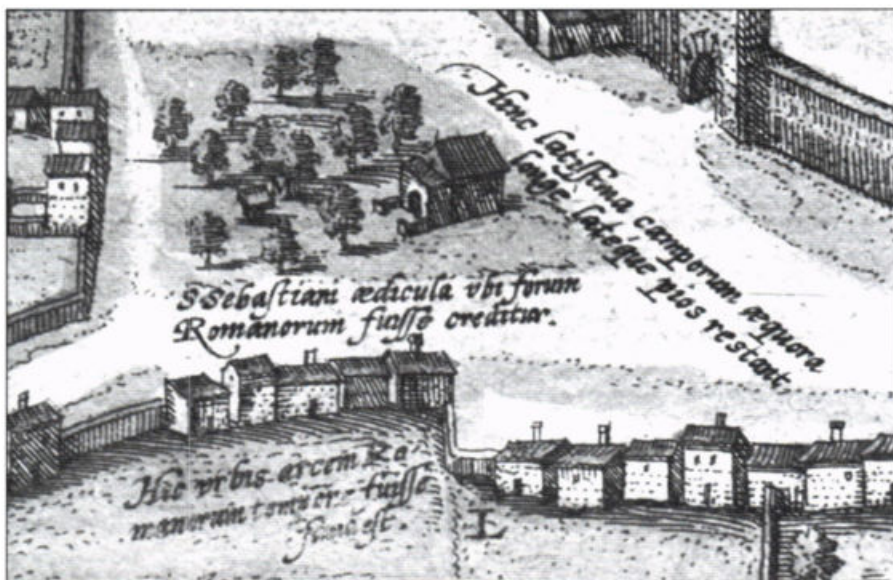 Hinc latissima camporum æquora
longe lateque pios restant.
S Sebastiani ædicula vbi forum
Romanorum fuisse creditur.
Hic vrbis arcem Ro
manorum tempore fuisse
est.
L